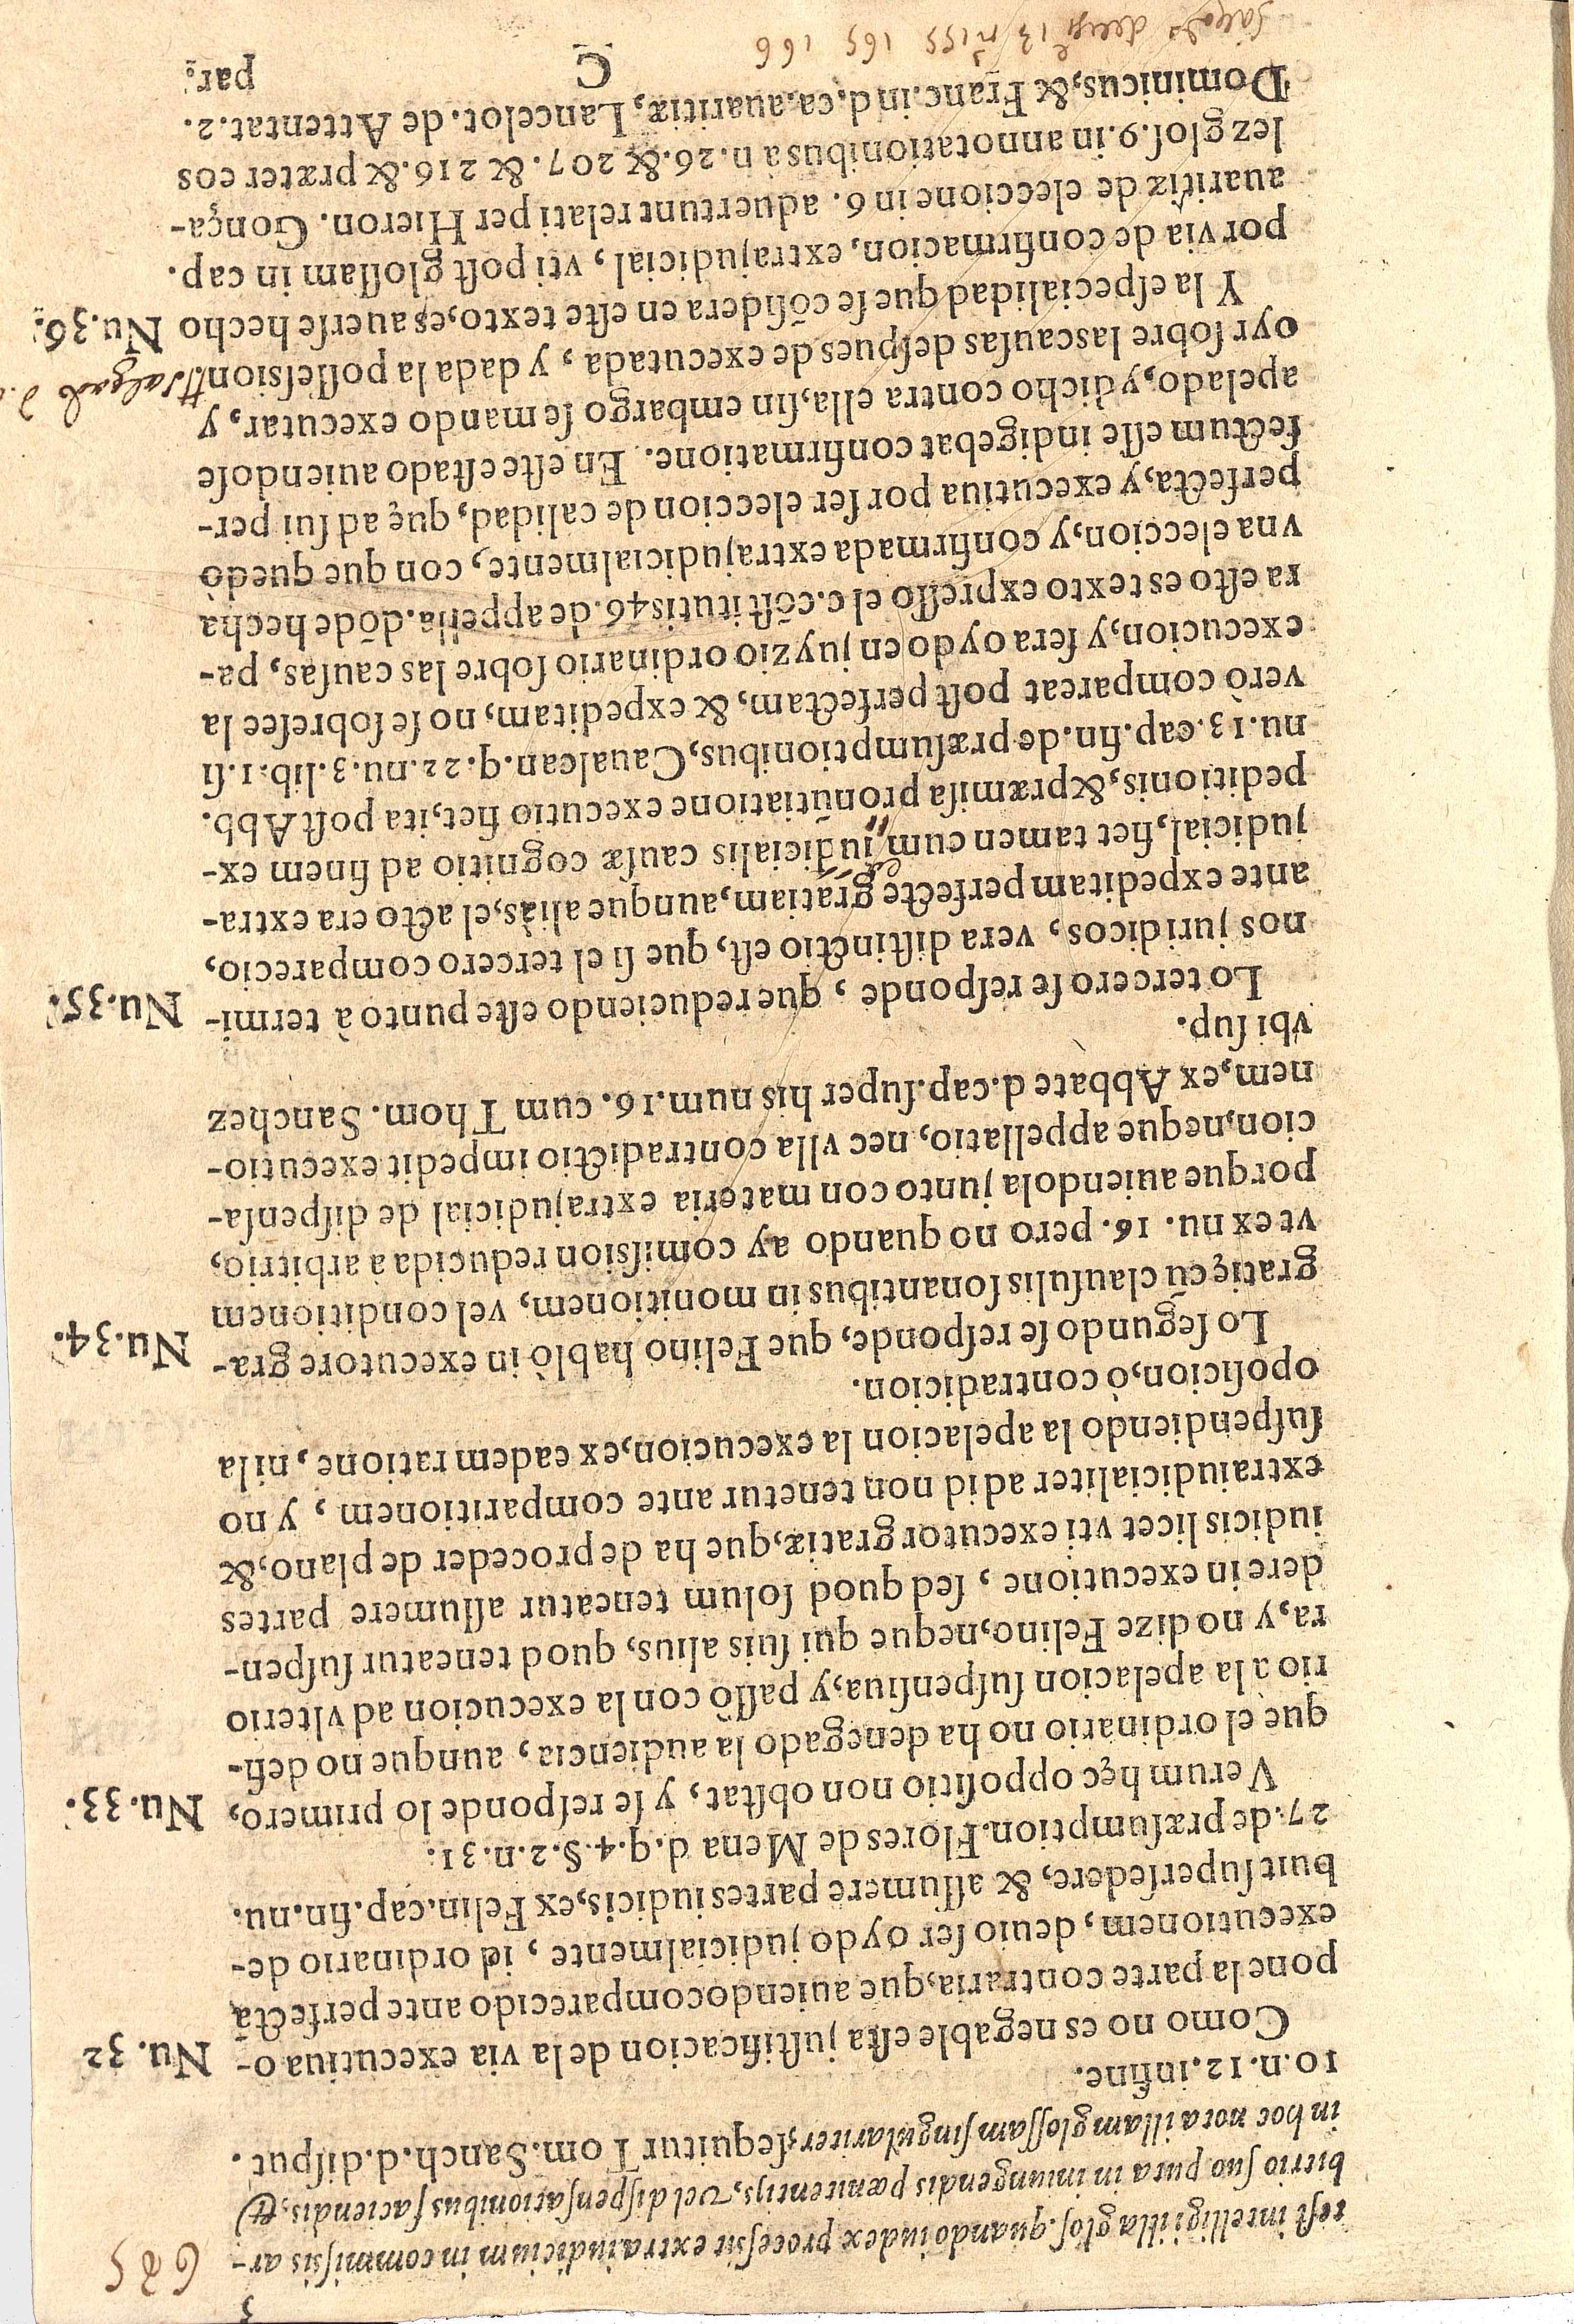 5
625
test intelligi illa glos. quando iudex processit extra iudicium in commissis ar-
bitrio suo puta in iniungendis pœnitentijs, vel dispensationibus faciendis, &
in hoc nota illam glossam singulariter, sequitur Tom. Sanch. d. disput.
10. n. 12. infine.
Como no es negable esta justificacion de la via executiua o- Nu. 32
pone la parte contraria, que auiendo comparecido ante perfectā
executionem, deuio ser oydo judicialmente, id ordinario de-
buit supersedere, & assumere partes iudicis, ex Felin. cap. fin. nu.
27. de præsumption. Flores de Mena d. q. 4. §. 2. n. 31.
Verum hęc oppositio non obstat, y se responde lo primero, Nu. 33.
que el ordinario no ha denegado la audiencia, aunque no defi-
rio a la apelacion suspensiua, y passò con la execucion ad vlterio
ra, y no dize Felino, neque qui suis alius, quod teneatur suspen-
dere in executione, sed quod solum teneatur assumere partes
iudicis licet vti executor gratiæ, que ha de proceder de plano, &
extraiudicialiter ad id non tenetur ante comparitionem, y no
suspendiendo la apelacion la execucion, ex eadem ratione, ni la
oposicion, ò contradicion.
Lo segundo se responde, que Felino hablò in executore gra- Nu. 34.
gratię cū clausulis sonantibus in monitionem, vel conditionem
vt ex nu. 16. pero no quando ay comission reducida à arbitrio,
porque auiendola junto con materia extrajudicial de dispensa-
cion, neque appellatio, nec vlla contradictio impedit executio-
nem, ex Abbate d. cap. super his num. 16. cum Thom. Sanchez
vbi sup.
Lo tercero se responde, que reduciendo este punto à termi- Nu. 35.
nos juridicos, vera distinctio est, que si el tercero comparecio,
ante expeditam perfecte gratiam, aunque aliàs, el acto era extra-
judicial, fiet tamen cum iudicialis causæ cognitio ad finem ex-
peditionis, & præmisa pronūtiatione executio fiet, ita post Abb.
nu. 13. cap. fin. de præsumptionibus, Caualcan. q. 22. nu. 3. lib. 1. si
verò compareat post perfectam, & expeditam, no se sobresee la
execucion, y sera oydo en juyzio ordinario sobre las causas, pa-
ra esto es texto expresso el c. cōstitutis 46. de appella. dōde hecha
vna eleccion, y confirmada extrajudicialmente, con que quedò
perfecta, y executiua por ser eleccion de calidad, quę ad sui per-
fectum esse indigebat confirmatione. En este estado auiendose
apelado, y dicho contra ella, sin embargo se mando executar, y
oyr sobre las causas despues de executada, y dada la possession.
Y la especialidad que se cōsidera en este texto, es auerse hecho Nu. 36.
por via de confirmacion, extrajudicial, vti post glossam in cap.
auaritiæ de eleccione in 6. aduertunt relati per Hieron. Gonça-
lez glos. 9. in annotationibus à n. 26. & 207. & 216. & præter eos
Dominicus, & Franc. in d. ca. auaritiæ, Lancelot. de Attentat. 2.
C par.
13 n 155 165 166